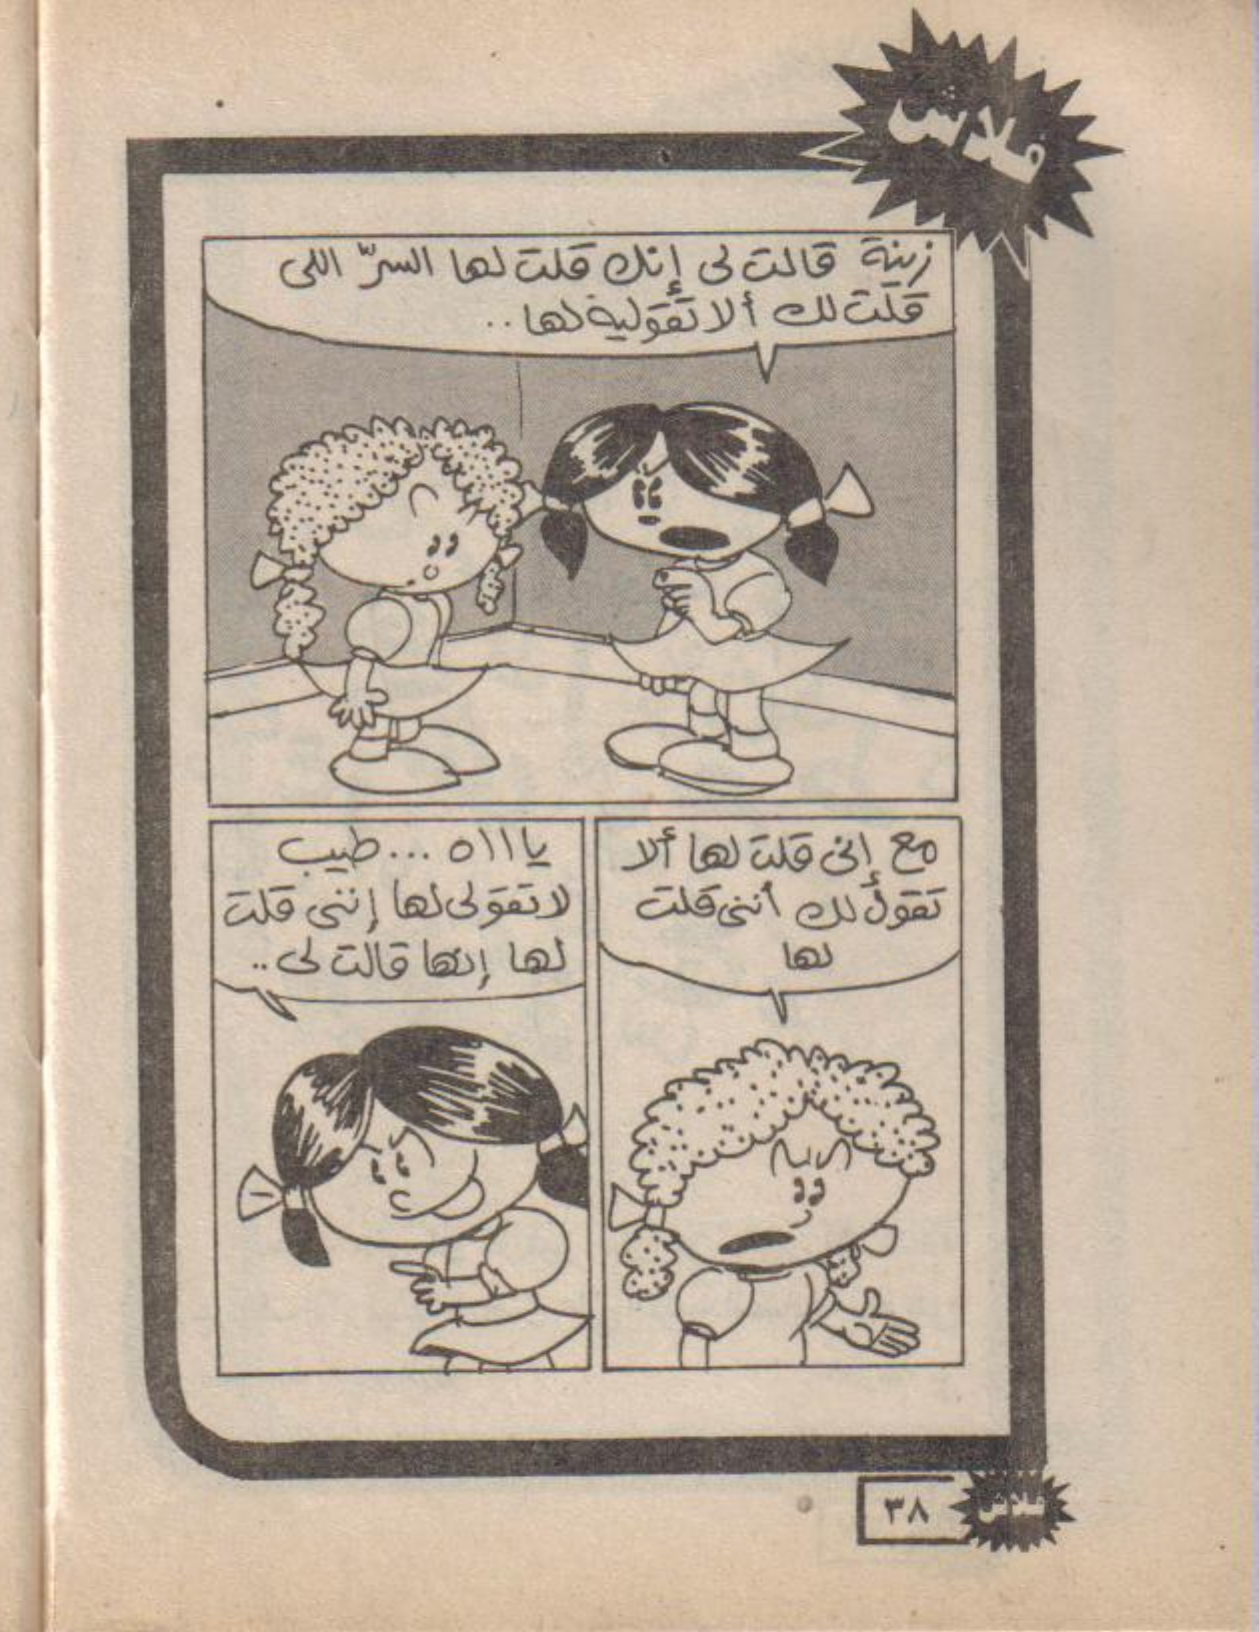 فلاش
زينة قالت لى إنك قلت لها السرّ اللى
قلت لك ألا تقوليه لها..
مع إنى قلت لها ألا
تقول لك أننى قلت
لها
يااااه ... طيب
لا تقولى لها إننى قلت
لها إنها قالت لى ..
٣٨
فلاش